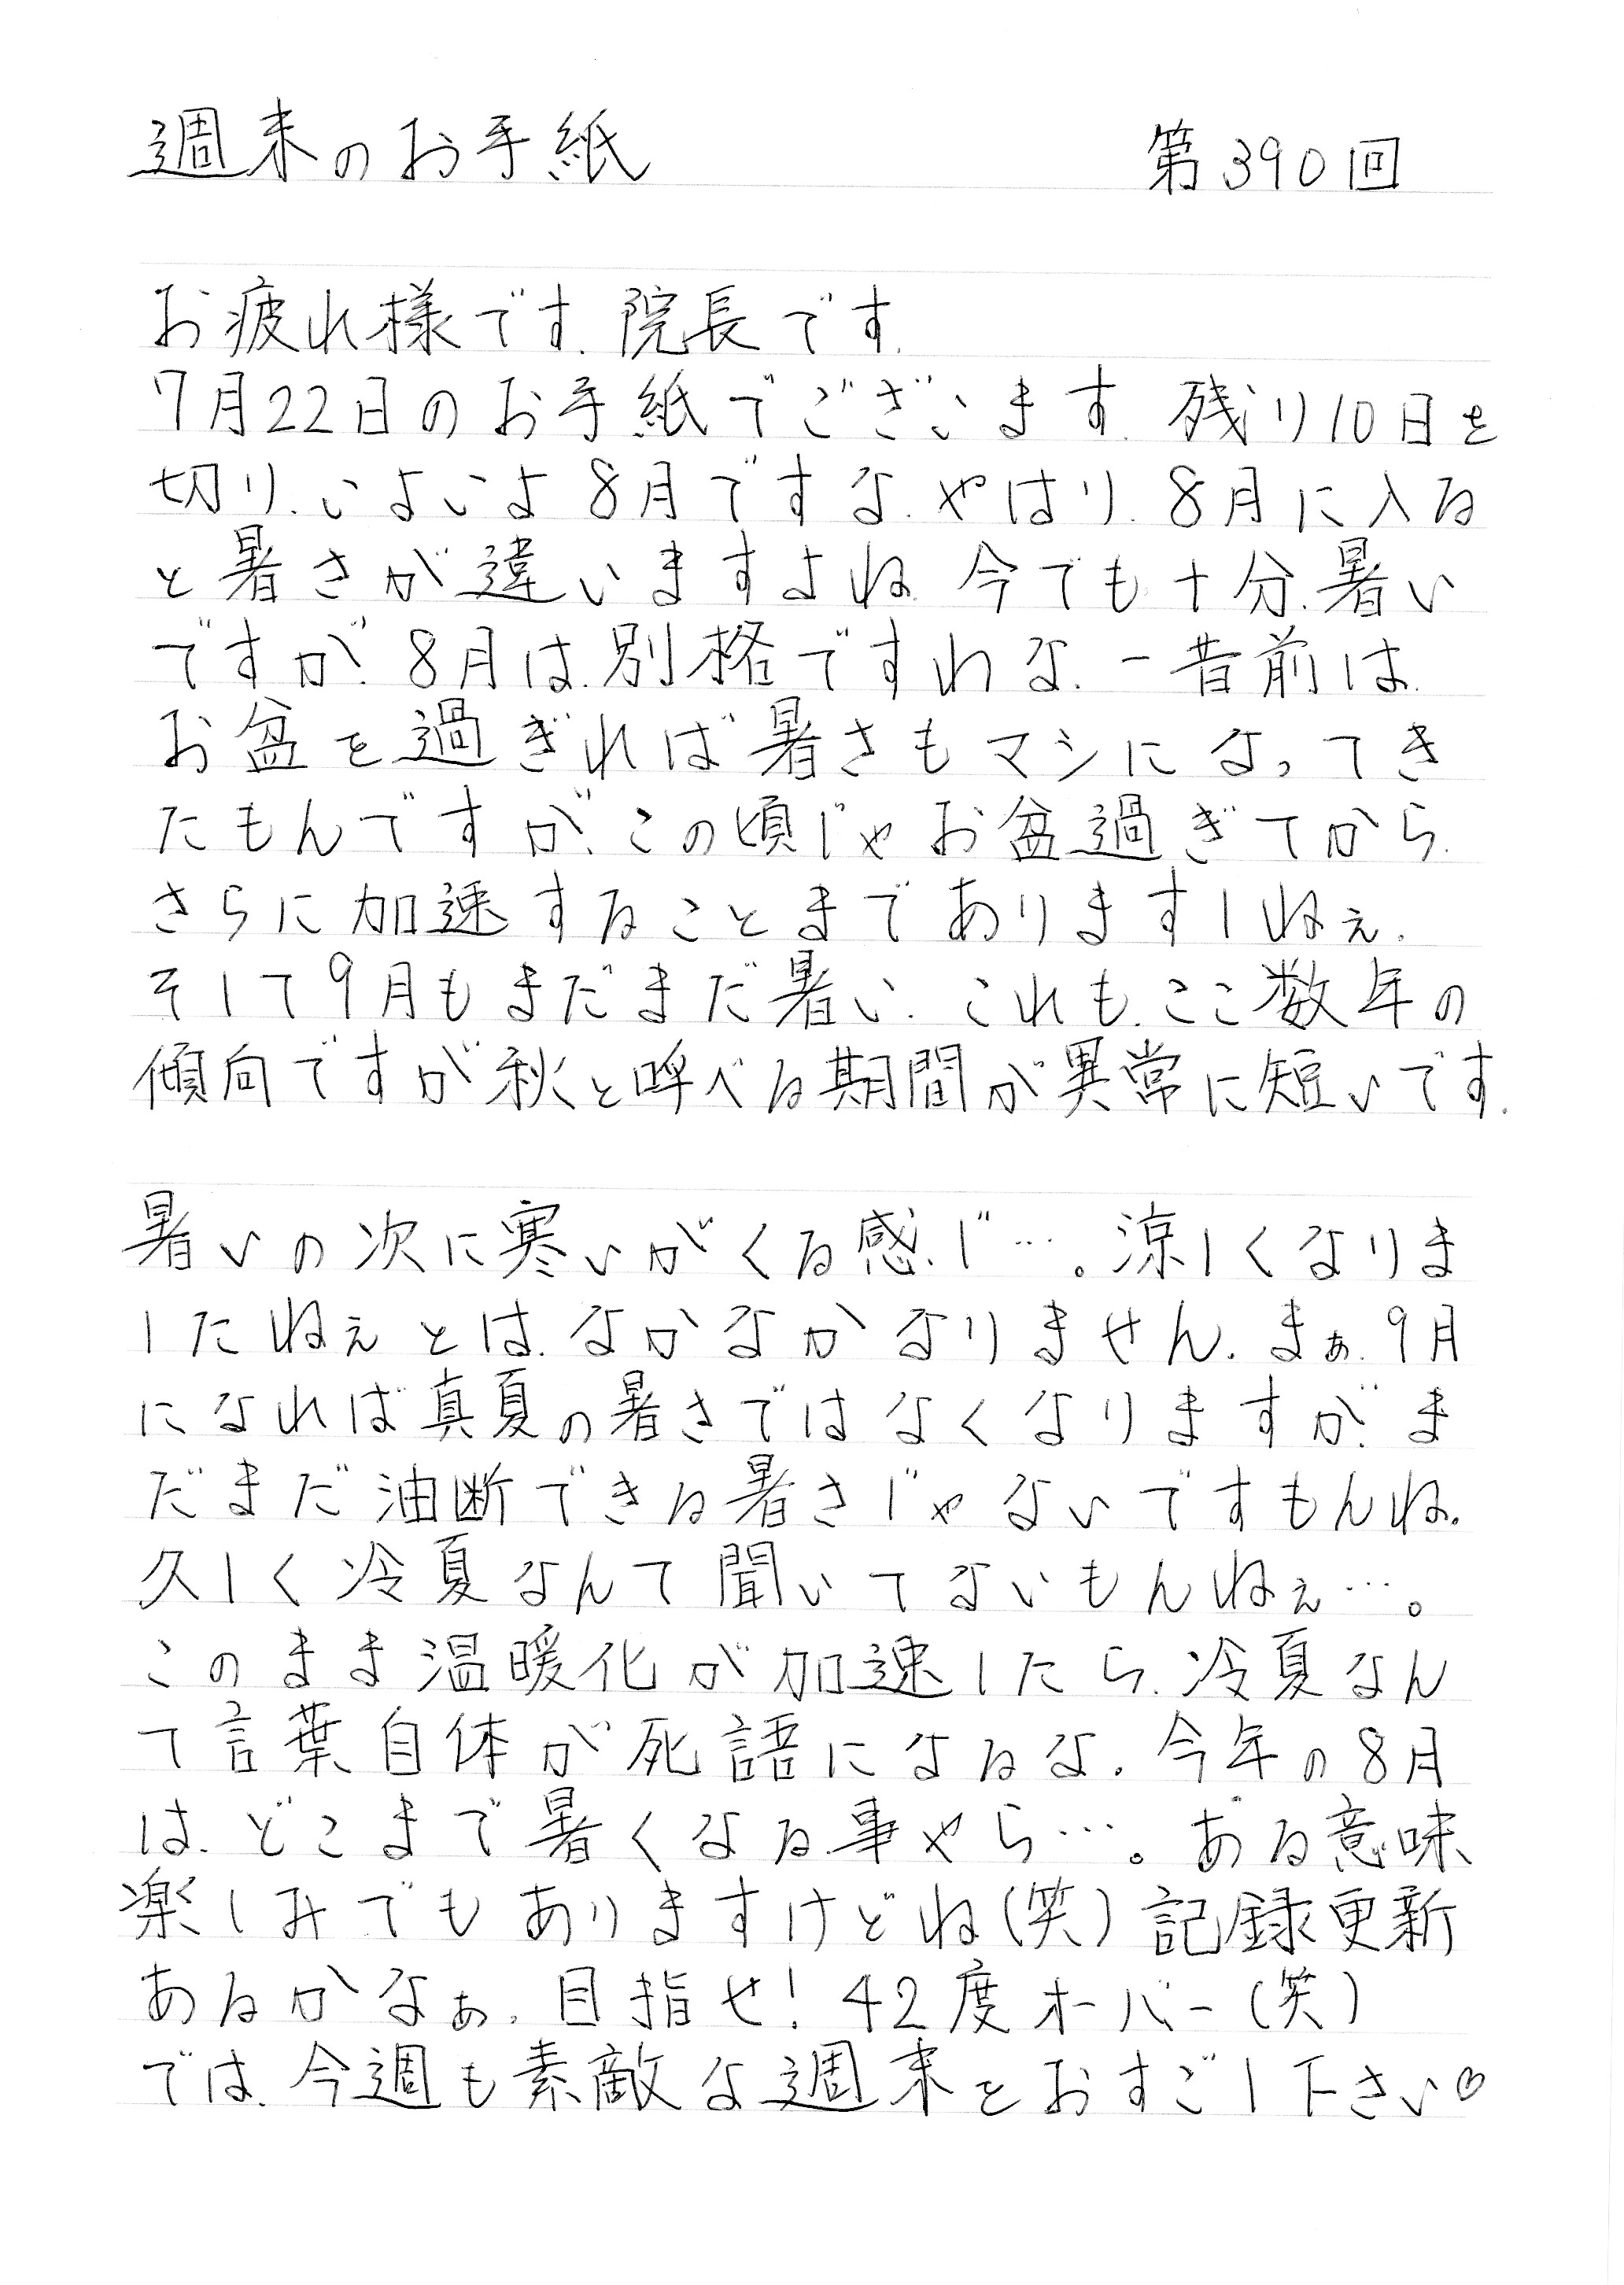 週末のお手紙 第390回
お疲れ様です.院長です.
7月22日のお手紙でございます.残り10日を
切り、いよいよ8月ですな.やはり、8月に入る
と暑さが違いますよね.今でも十分、暑い
ですが、8月は、別格ですわな.一昔前は、
お盆を過ぎれば暑さもマシになってき
たもんですが、この頃じゃお盆過ぎてから、
さらに加速することまでありますしねぇ.
そして9月もまだまだ暑い.これも、ここ数年の
傾向ですが秋と呼べる期間が異常に短いです.
暑いの次に寒いがくる感じ…。涼しくなりま
したねぇとは、なかなかなりません.まぁ、9月
になれば真夏の暑さではなくなりますが、ま
だまだ油断できる暑さじゃないですもんね。
久しく冷夏なんて聞いてないもんねぇ…。
このまま温暖化が加速したら、冷夏なん
て言葉自体が死語になるな.今年の8月
は、どこまで暑くなる事やら…。ある意味
楽しみでもありますけどね(笑)記録更新
あるかなぁ.目指せ!42度オーバー(笑)
では、今週も素敵な週末をおすごし下さい♡